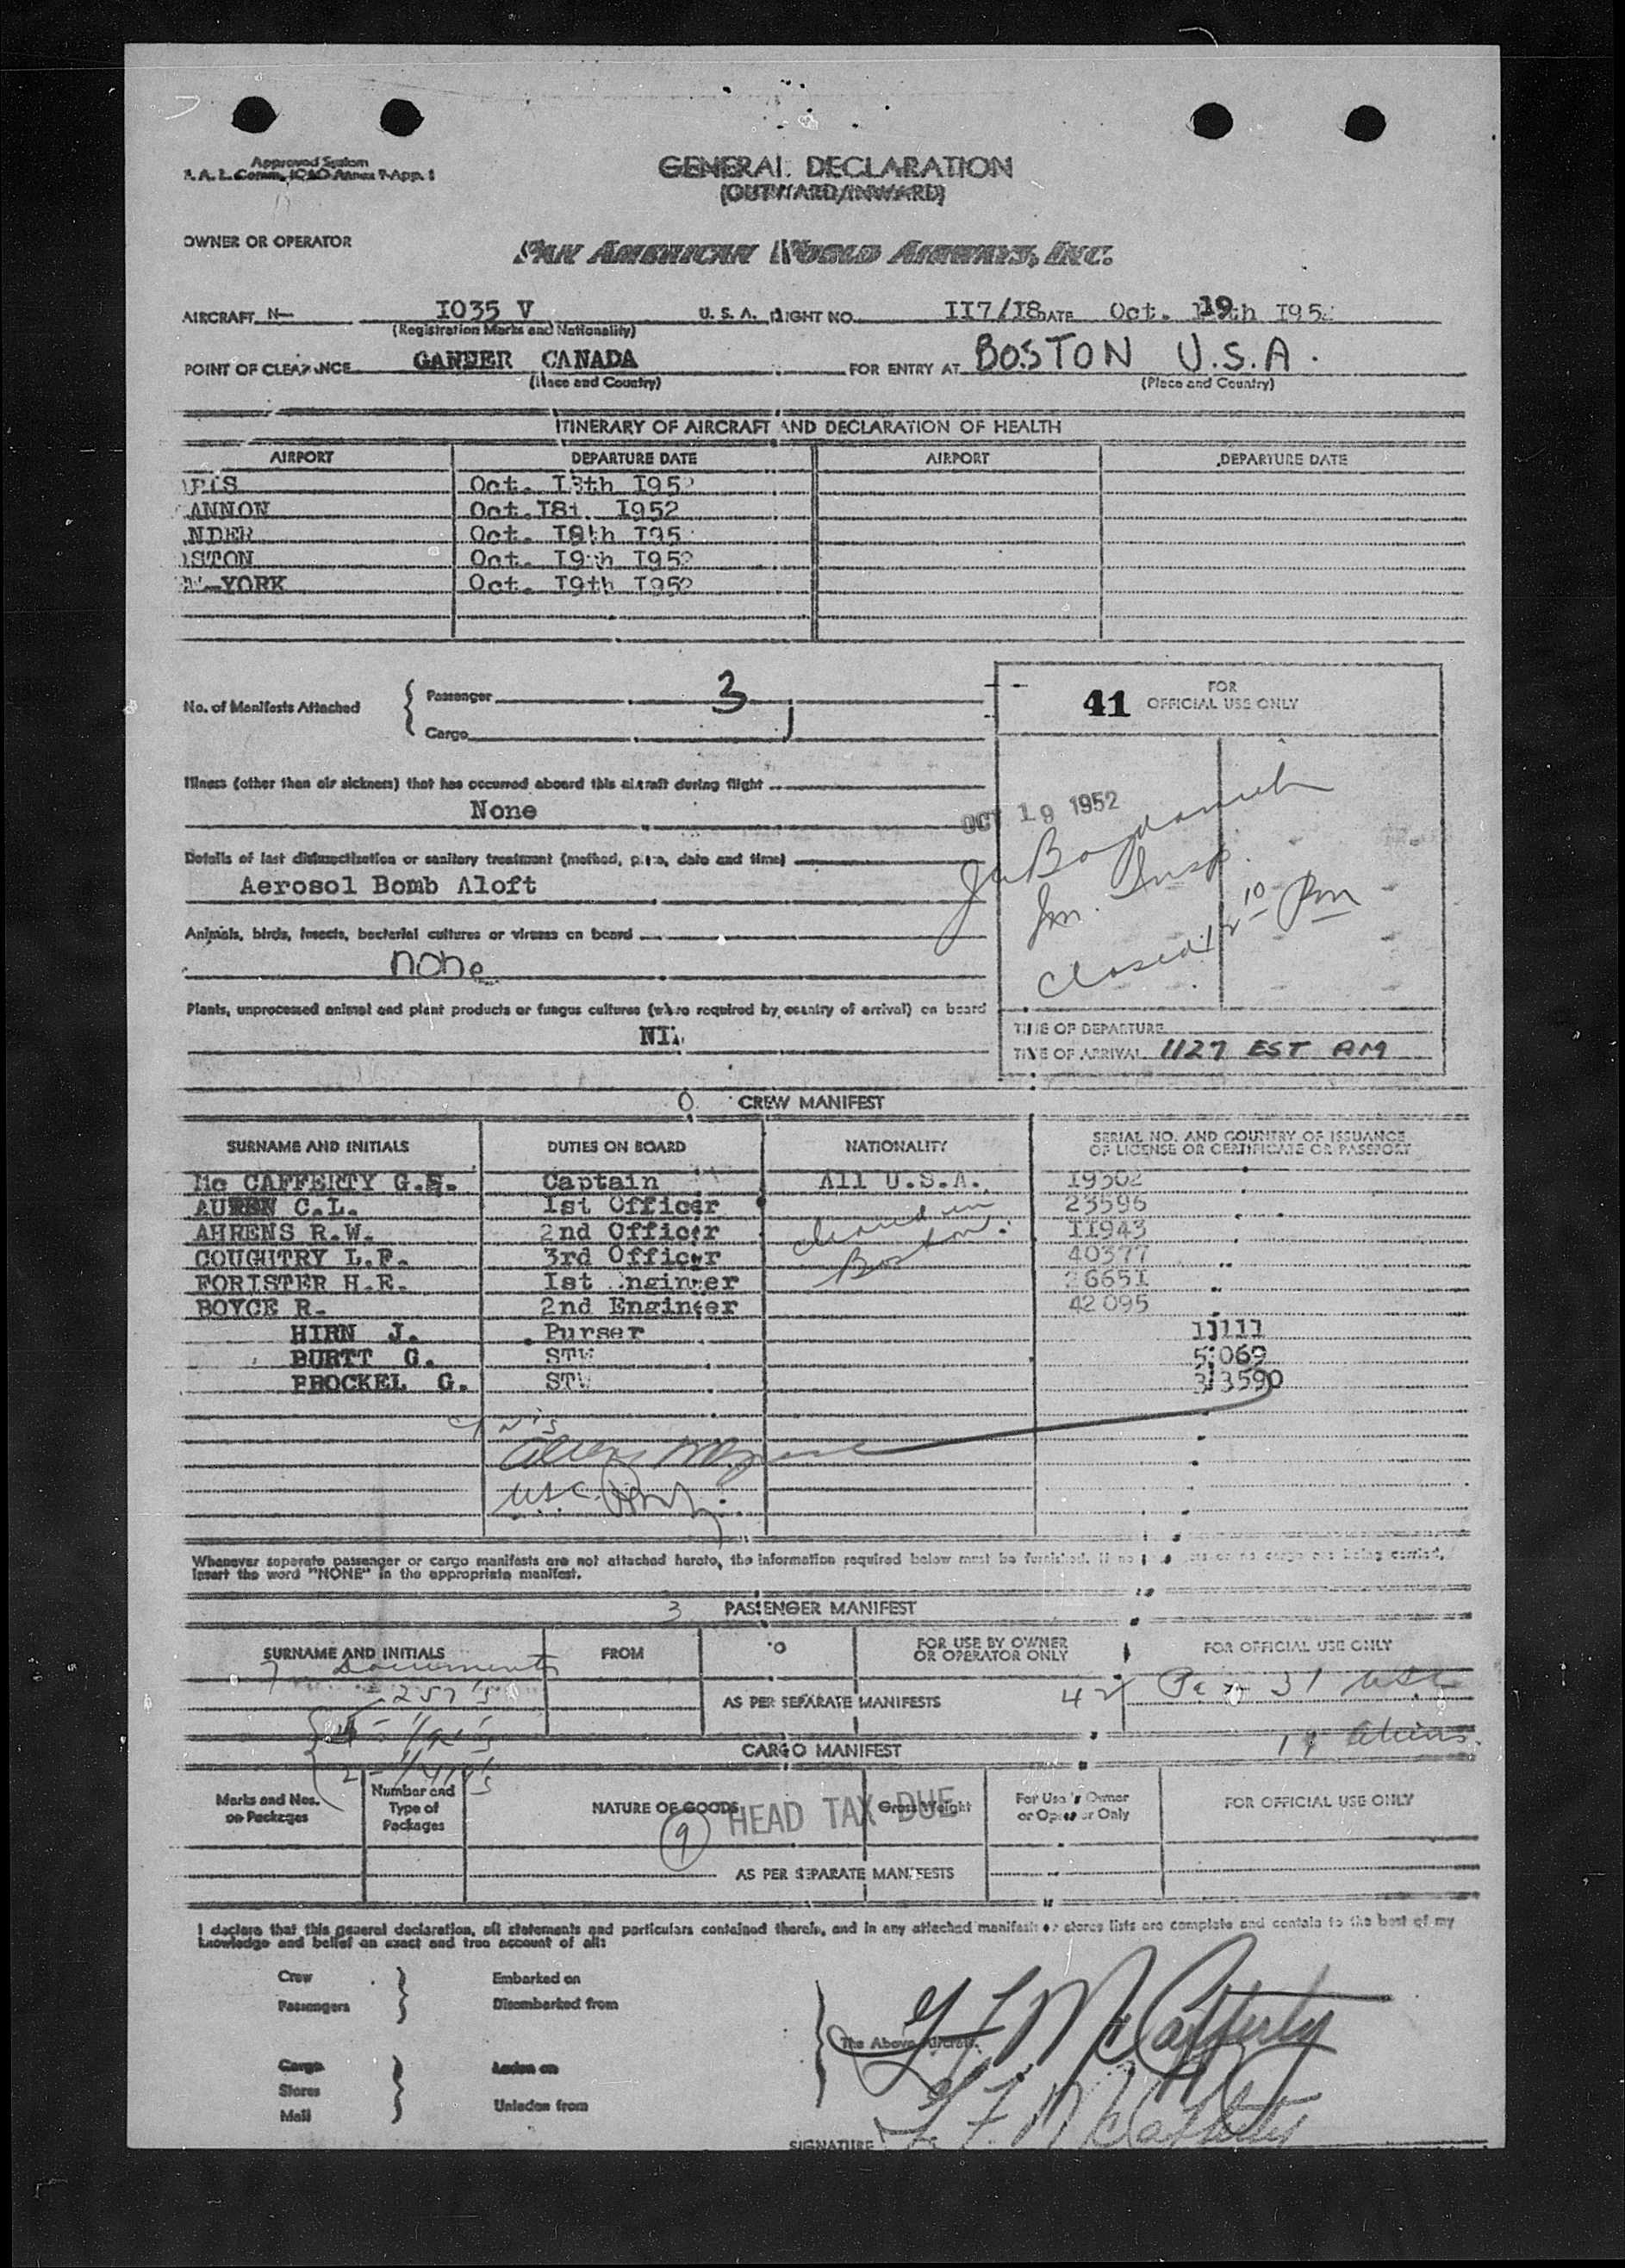 Approved System
F. A. L. Comm. ICAO Annex 9-App. 1
GENERAL DECLARATION
(OUTWARD/INWARD)
OWNER OR OPERATOR
PAN AMERICAN WORLD AIRWAYS, INC.
AIRCRAFT N- I035 V U. S. A. FLIGHT NO. II7/I8 DATE Oct. 19th I952
(Registration Marks and Nationality)
POINT OF CLEARANCE GANDER CANADA FOR ENTRY AT BOSTON U.S.A.
(Place and Country) (Place and Country)
ITINERARY OF AIRCRAFT AND DECLARATION OF HEALTH
AIRPORT DEPARTURE DATE AIRPORT DEPARTURE DATE
ARIS Oct. I8th I952
ANNON Oct. I8t I952
NDER Oct. I9th I95
OSTON Oct. I9th I952
W-YORK Oct. I9th I952
No. of Manifests Attached
Passenger 3
Cargo
41 FOR OFFICIAL USE ONLY
Illness (other than air sickness) that has occurred aboard this aircraft during flight
None
OCT 19 1952
Details of last disinsectization or sanitary treatment (method, place, date and time)
Aerosol Bomb Aloft
Im. Insp.
Closed 12 10 Pm
Animals, birds, insects, bacterial cultures or viruses on board
none
Plants, unprocessed animal and plant products or fungus cultures (where required by country of arrival) on board
NIL
TIME OF DEPARTURE
TIME OF ARRIVAL 1127 EST AM
0 CREW MANIFEST
SURNAME AND INITIALS DUTIES ON BOARD NATIONALITY SERIAL NO. AND COUNTRY OF ISSUANCE OF LICENSE OR CERTIFICATE OR PASSPORT
Mc CAFFERTY G.F. Captain All U.S.A. I9302
AUREN C.L. 1st Officer 23596
AHRENS R.W. 2nd Officer II943
cleared in Boston.
COUGHTRY L.F. 3rd Officer 40377
FORISTER H.E. Ist Engineer 6651
BOYCE R. 2nd Engineer 42095
HIRN J. Purser 11111
BURTT G. STW 5 069
BROCKEL G. STW 3 3590
Whenever separate passenger or cargo manifests are not attached hereto, the information required below must be furnished. If no passengers or no cargo are being carried,
insert the word "NONE" in the appropriate manifest.
3 PASSENGER MANIFEST
SURNAME AND INITIALS FROM TO FOR USE BY OWNER OR OPERATOR ONLY FOR OFFICIAL USE ONLY
7 Documents
257's
AS PER SEPARATE MANIFESTS
42 Pax 31 USC
11 Aliens
CARGO MANIFEST
Marks and Nos. on Packages Number and Type of Packages NATURE OF GOODS Gross Weight For Use by Owner or Operator Only FOR OFFICIAL USE ONLY
9 HEAD TAX DUE
AS PER SEPARATE MANIFESTS
I declare that this general declaration, all statements and particulars contained therein, and in any attached manifest or stores lists are complete and contain to the best of my
knowledge and belief an exact and true account of all:
Crew Embarked on
Passengers Disembarked from
The Above Aircraft.
G F McCafferty
Cargo Laden on
Stores
Mail Unladen from
G F McCafferty
SIGNATURE